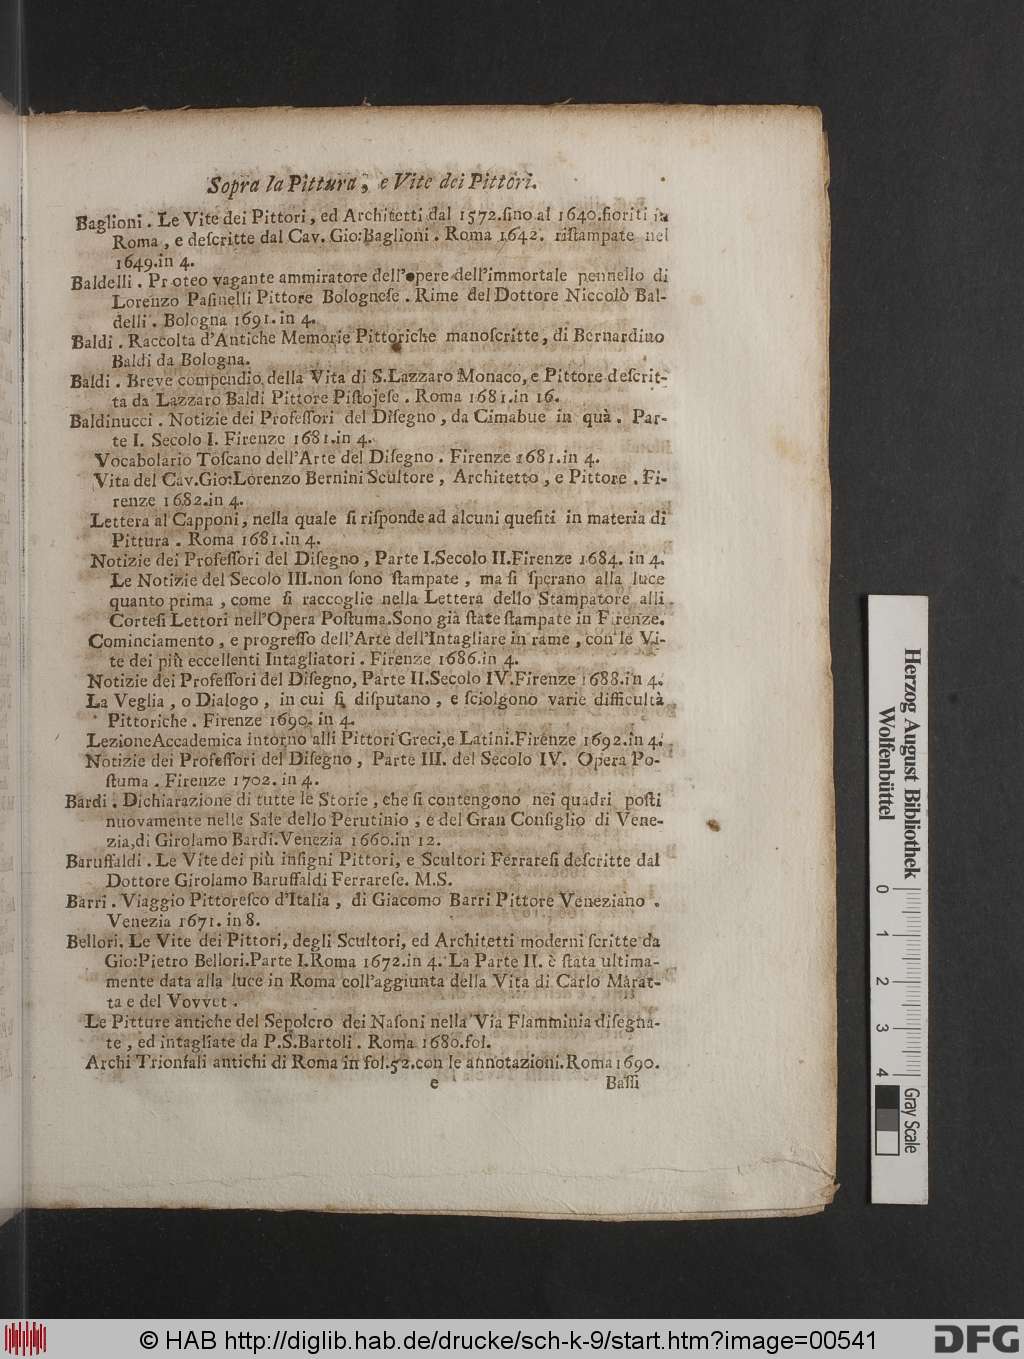 Sopra la Pittura, e Vite dei Pittori.
Baglioni. Le Vite dei Pittori, ed Architetti dal 1572. ſino al 1640. fioriti in
Roma, e deſcritte dal Cav. Gio: Baglioni. Roma 1642. riſtampate nel
1649. in 4.
Baldelli. Proteo vagante ammiratore dell'opere dell'immortale pennello di
Lorenzo Paſinelli Pittore Bologneſe. Rime del Dottore Niccolò Bal-
delli. Bologna 1691. in 4.
Baldi. Raccolta d'Antiche Memorie Pittoriche manoſcritte, di Bernardino
Baldi da Bologna.
Baldi. Breve compendio della Vita di S. Lazzaro Monaco, e Pittore deſcrit-
ta da Lazzaro Baldi Pittore Piſtojeſe. Roma 1681. in 16.
Baldinucci. Notizie dei Profeſſori del Diſegno, da Cimabue in quà. Par-
te I. Secolo I. Firenze 1681. in 4.
Vocabolario Toſcano dell'Arte del Diſegno. Firenze 1681. in 4.
Vita del Cav. Gio: Lorenzo Bernini Scultore, Architetto, e Pittore. Fi-
renze 1682. in 4.
Lettera al Capponi, nella quale ſi riſponde ad alcuni queſiti in materia di
Pittura. Roma 1681. in 4.
Notizie dei Profeſſori del Diſegno, Parte I. Secolo II. Firenze 1684. in 4.
Le Notizie del Secolo III. non ſono ſtampate, ma ſi ſperano alla luce
quanto prima, come ſi raccoglie nella Lettera dello Stampatore alli
Corteſi Lettori nell'Opera Poſtuma. Sono già ſtate ſtampate in Firenze.
Cominciamento, e progreſſo dell'Arte dell'Intagliare in rame, con le Vi-
te dei più eccellenti Intagliatori. Firenze 1686. in 4.
Notizie dei Profeſſori del Diſegno, Parte II. Secolo IV. Firenze 1688. in 4.
La Veglia, o Dialogo, in cui ſi diſputano, e ſciolgono varie difficultà
Pittoriche. Firenze 1690. in 4.
Lezione Accademica intorno alli Pittori Greci, e Latini. Firenze 1692. in 4.
Notizie dei Profeſſori del Diſegno, Parte III. del Secolo IV. Opera Po-
ſtuma. Firenze 1702. in 4.
Bardi. Dichiarazione di tutte le Storie, che ſi contengono nei quadri poſti
nuovamente nelle Sale dello Perutinio, e del Gran Conſiglio di Vene-
zia, di Girolamo Bardi. Venezia 1660. in 12.
Baruffaldi. Le Vite dei più inſigni Pittori, e Scultori Ferrareſi deſcritte dal
Dottore Girolamo Baruffaldi Ferrareſe. M.S.
Barri. Viaggio Pittoreſco d'Italia, di Giacomo Barri Pittore Veneziano.
Venezia 1671. in 8.
Bellori. Le Vite dei Pittori, degli Scultori, ed Architetti moderni ſcritte da
Gio: Pietro Bellori. Parte I. Roma 1672. in 4. La Parte II. è ſtata ultima-
mente data alla luce in Roma coll'aggiunta della Vita di Carlo Marat-
ta e del Vovvet.
Le Pitture antiche del Sepolcro dei Naſoni nella Via Flamminia diſegna-
te, ed intagliate da P. S. Bartoli. Roma 1680. fol.
Archi Trionfali antichi di Roma in fol. 52. con le annotazioni. Roma 1690.
e Baſſi
Herzog August Bibliothek
Wolfenbüttel
0 1 2 3 4
Gray Scale
© HAB http://diglib.hab.de/drucke/sch-k-9/start.htm?image=00541
DFG